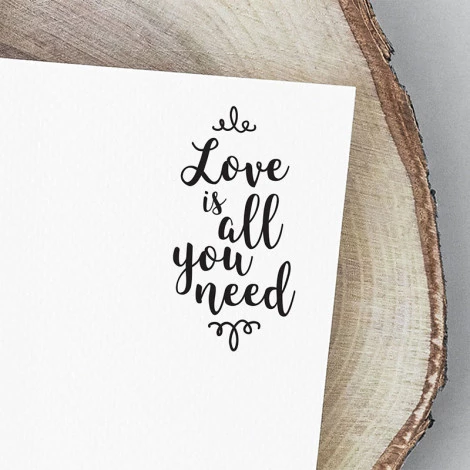 Love
is
all
you
need